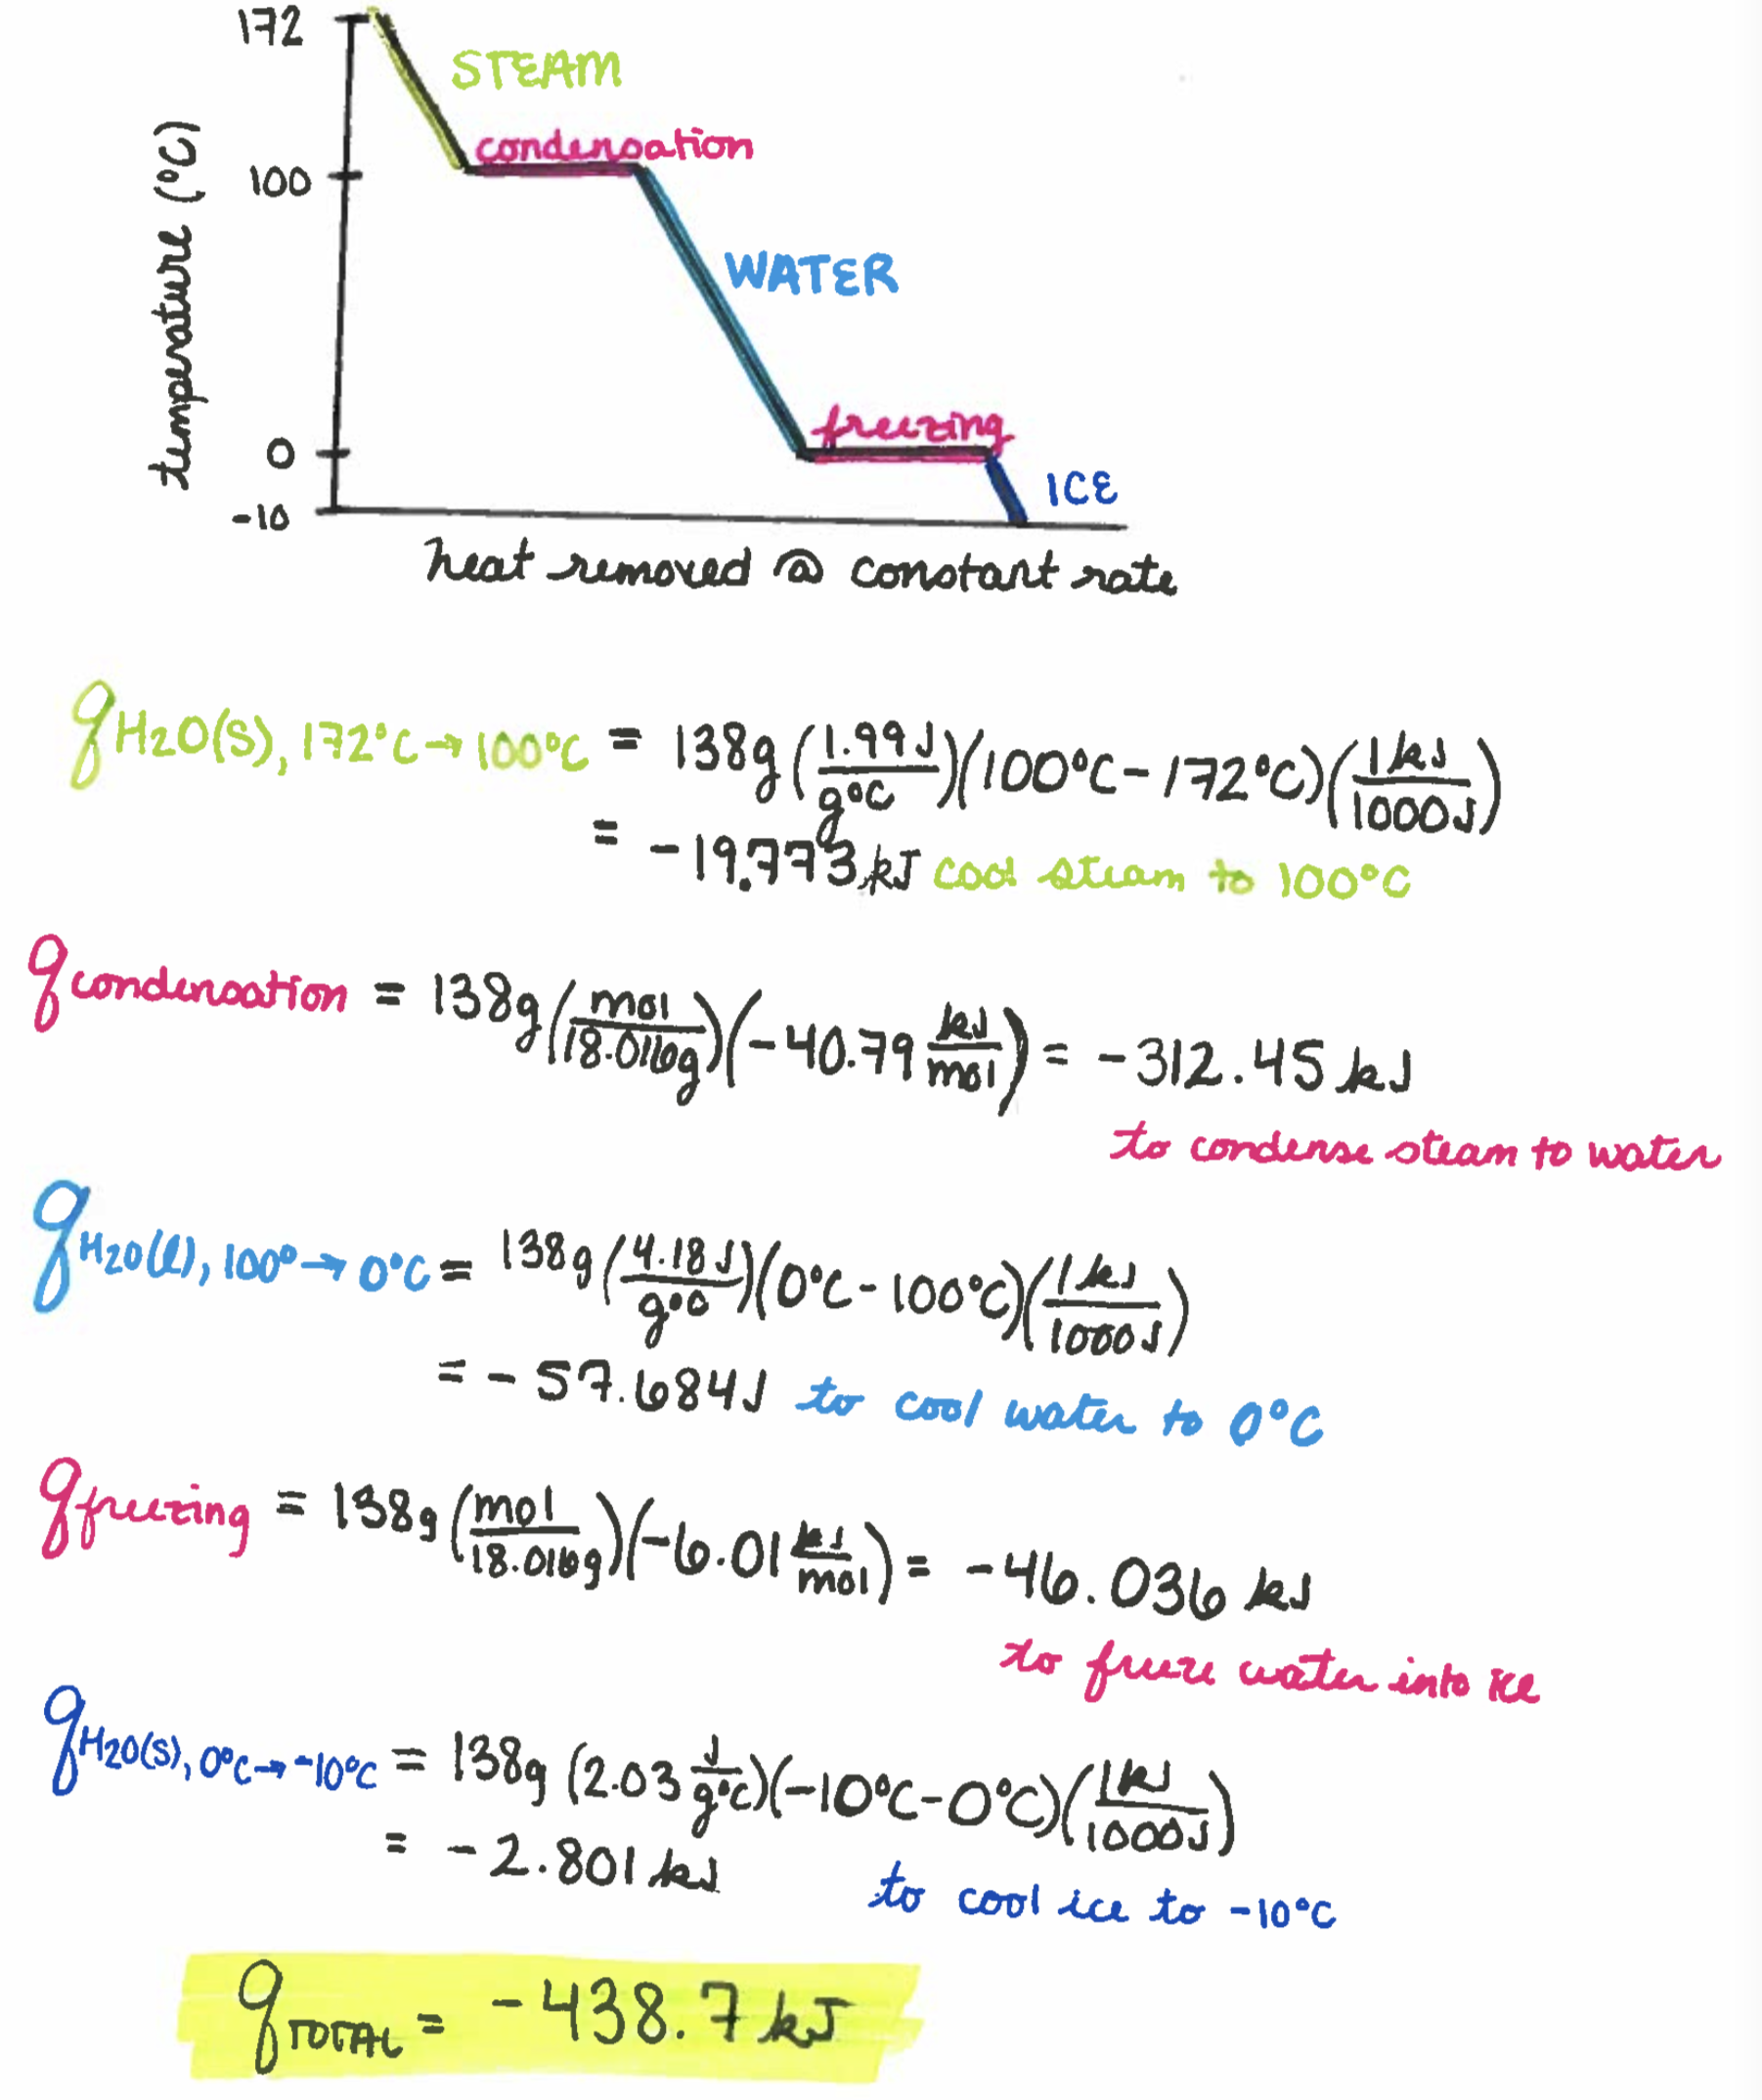 172
STEAM
condensation
100
temperature (°C)
WATER
freezing
0
ICE
-10
heat removed @ constant rate
qH2O(s), 172°C → 100°C = 138g (1.99J/g°C)(100°C - 172°C)(1kJ/1000J)
= -19.773 kJ cool steam to 100°C
qcondensation = 138g (mol/18.016g)(-40.79 kJ/mol) = -312.45 kJ
to condense steam to water
qH2O(l), 100° → 0°C = 138g (4.18J/g°C)(0°C - 100°C)(1kJ/1000J)
= - 57.684J to cool water to 0°C
qfreezing = 138g (mol/18.016g)(-6.01 kJ/mol) = -46.036 kJ
to freeze water into ice
qH2O(s), 0°C → -10°C = 138g (2.03 J/g°C)(-10°C - 0°C)(1kJ/1000J)
= -2.801 kJ to cool ice to -10°C
qTOTAL = -438.7 kJ